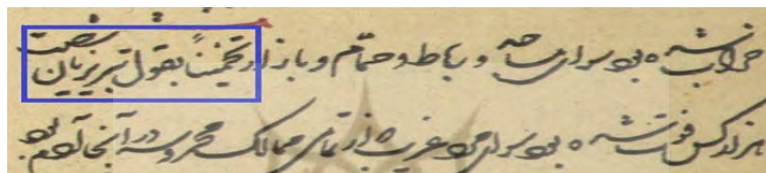 خراب شده بود سوای مساجد و رباط و حمام و بازار تخمیناً بقول تبریزیان شصت
هزار کس فوت شده بود سوای مردم غریب از تمامی ممالک محروسه در آنجا